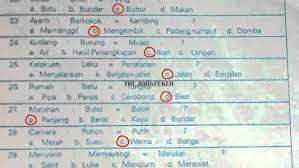 a. Batu b. Bundar c. Bubur d. Makan
23. Ayam Berkokok = Kambing ?
a. Memanggil b. Mengembik c. Padang rumput d. Domba
24. Kutilang Burung = Mujair
a. Air b. Hasil Penangkapan c. Ikan d. Umpan
25. Kelakuan Laku = Perjalanan
a. Menjalankan b. Berjalan-jalan c. Jalan d. Berjalan
THE JOBSEEKER
26. Rumah Batu = Kapal
a. Pipa b. Panas c. Cerobong d. Besi
27. Matahari Bulat = Balok ?
a. Panjang b. Berat c. Kayu d. Bundar
28. Cemara Pohon = Putih ?
a. Mewah b. Susu c. Warna d. Bunga
29. Menyakiti Menyayangi = Melukai ?
a. Sakit b. Luka c. d. Merawat